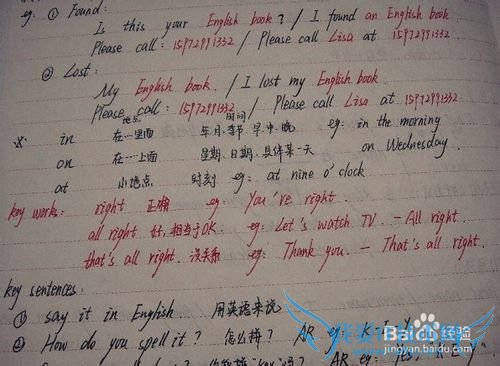 eg: ① Found:
Is this your English book? / I found an English book.
Please call: 15972991332 / Please call Lisa at 15972991332
② Lost:
My English book. / I lost my English book.
Please call: 15972991332 / Please call Lisa at 15972991332
地点 时间
※: in 在…里面 年.月.季节.早.中.晚 eg: in the morning
on 在…上面 星期.日期.具体某一天 on Wednesday.
at 小地点 时刻 eg: at nine o'clock
key work: right 正确 eg: You're right.
all right 好,相当于OK. eg: Let's watch TV. - All right.
that's all right 没关系 eg: Thank you. - That's all right.
key sentences:
① say it in English 用英语来说
② How do you spell it? 怎么拼? AR eg: K-E-Y.
AR eg: Yes, K-E-Y.
Baidu 百科经验
jingyan.baidu.com